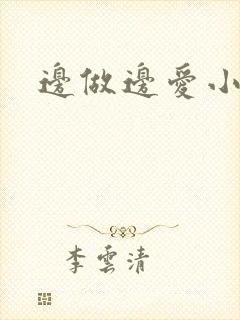 邊做邊愛小
李雲清